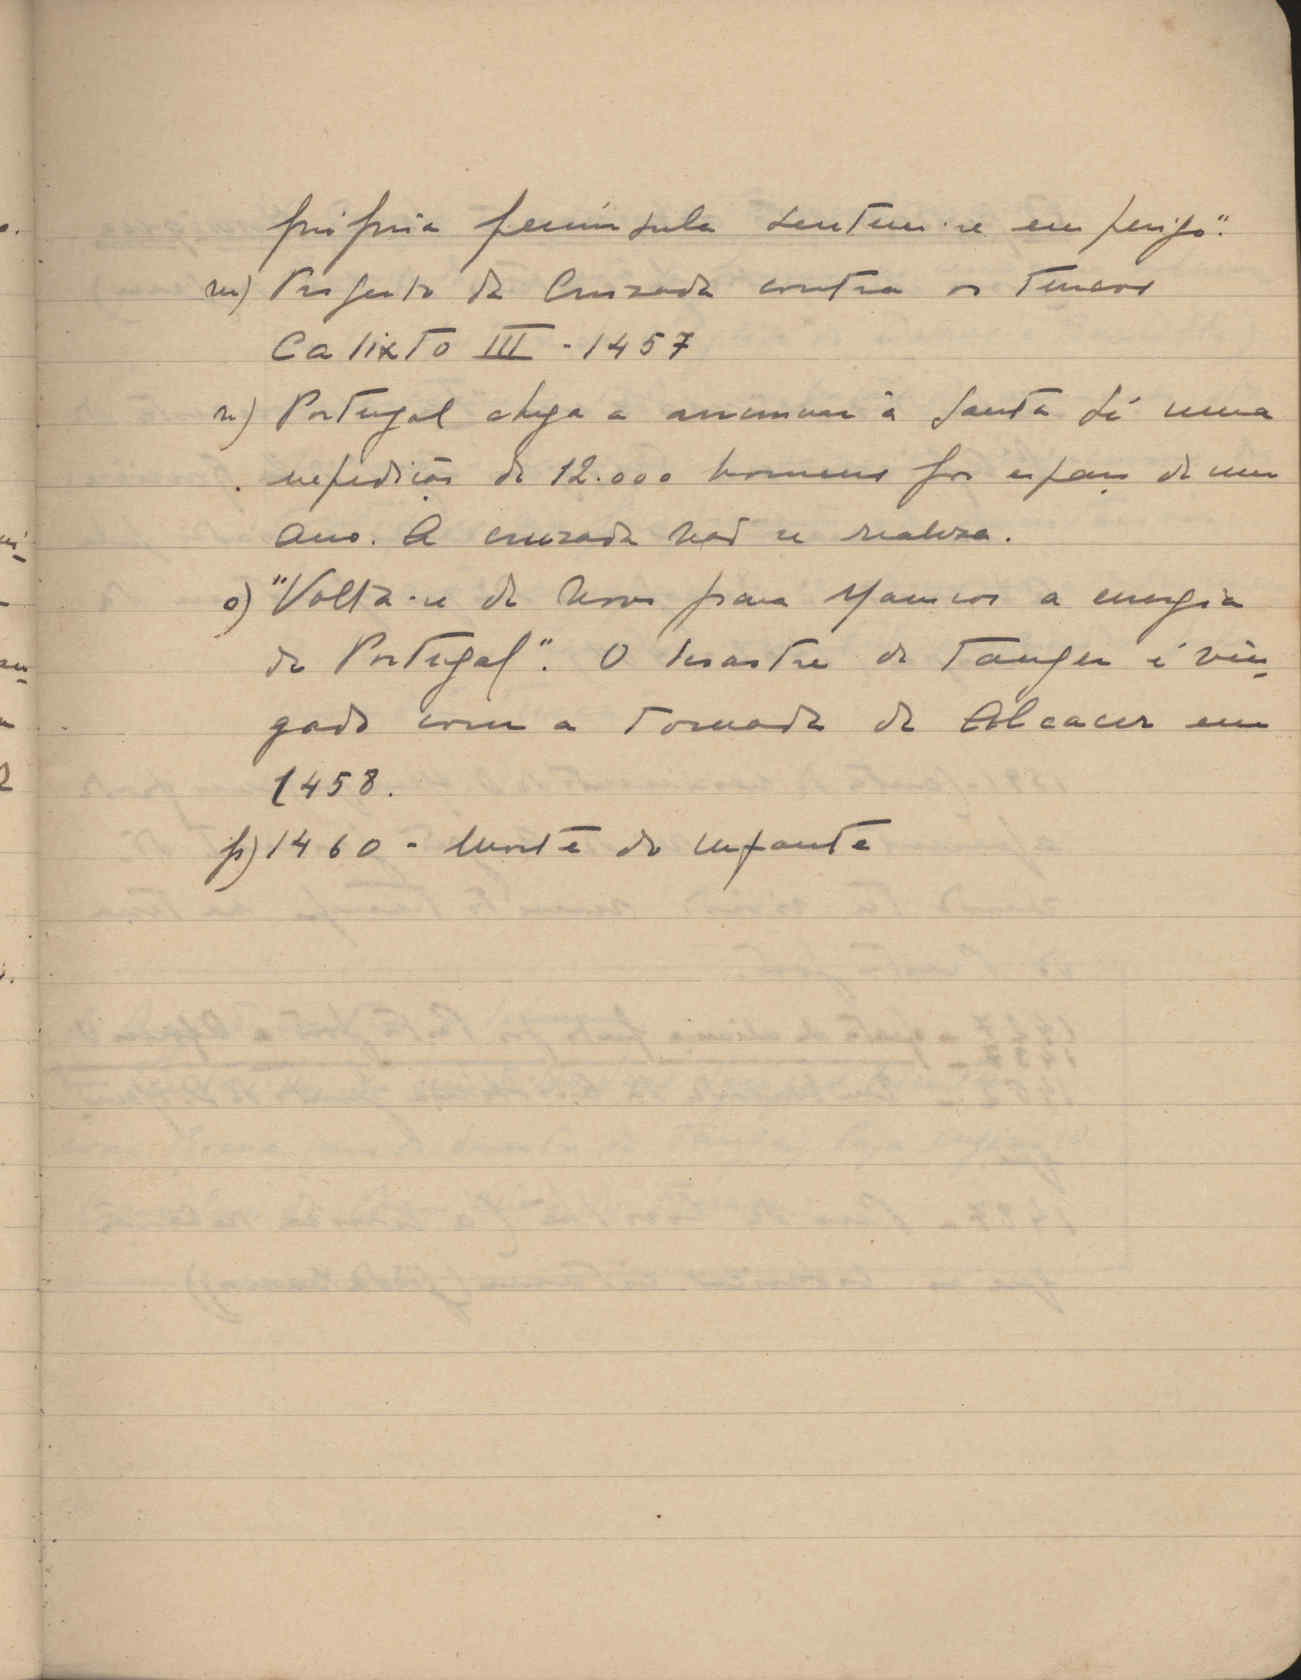 própria península sentem-se em perigo".
m) Projecto da Cruzada contra os turcos
Calixto III - 1457
n) Portugal chega a anunciar à Santa Sé uma
expedição de 12.000 homens por espaço de um
ano. A cruzada não se realiza.
o) "Volta-se de novo para Marrocos a energia
de Portugal". O desastre de Tanger é vin-
gado com a tomada de Alcacer em
1458.
p) 1460 - Morte do Infante